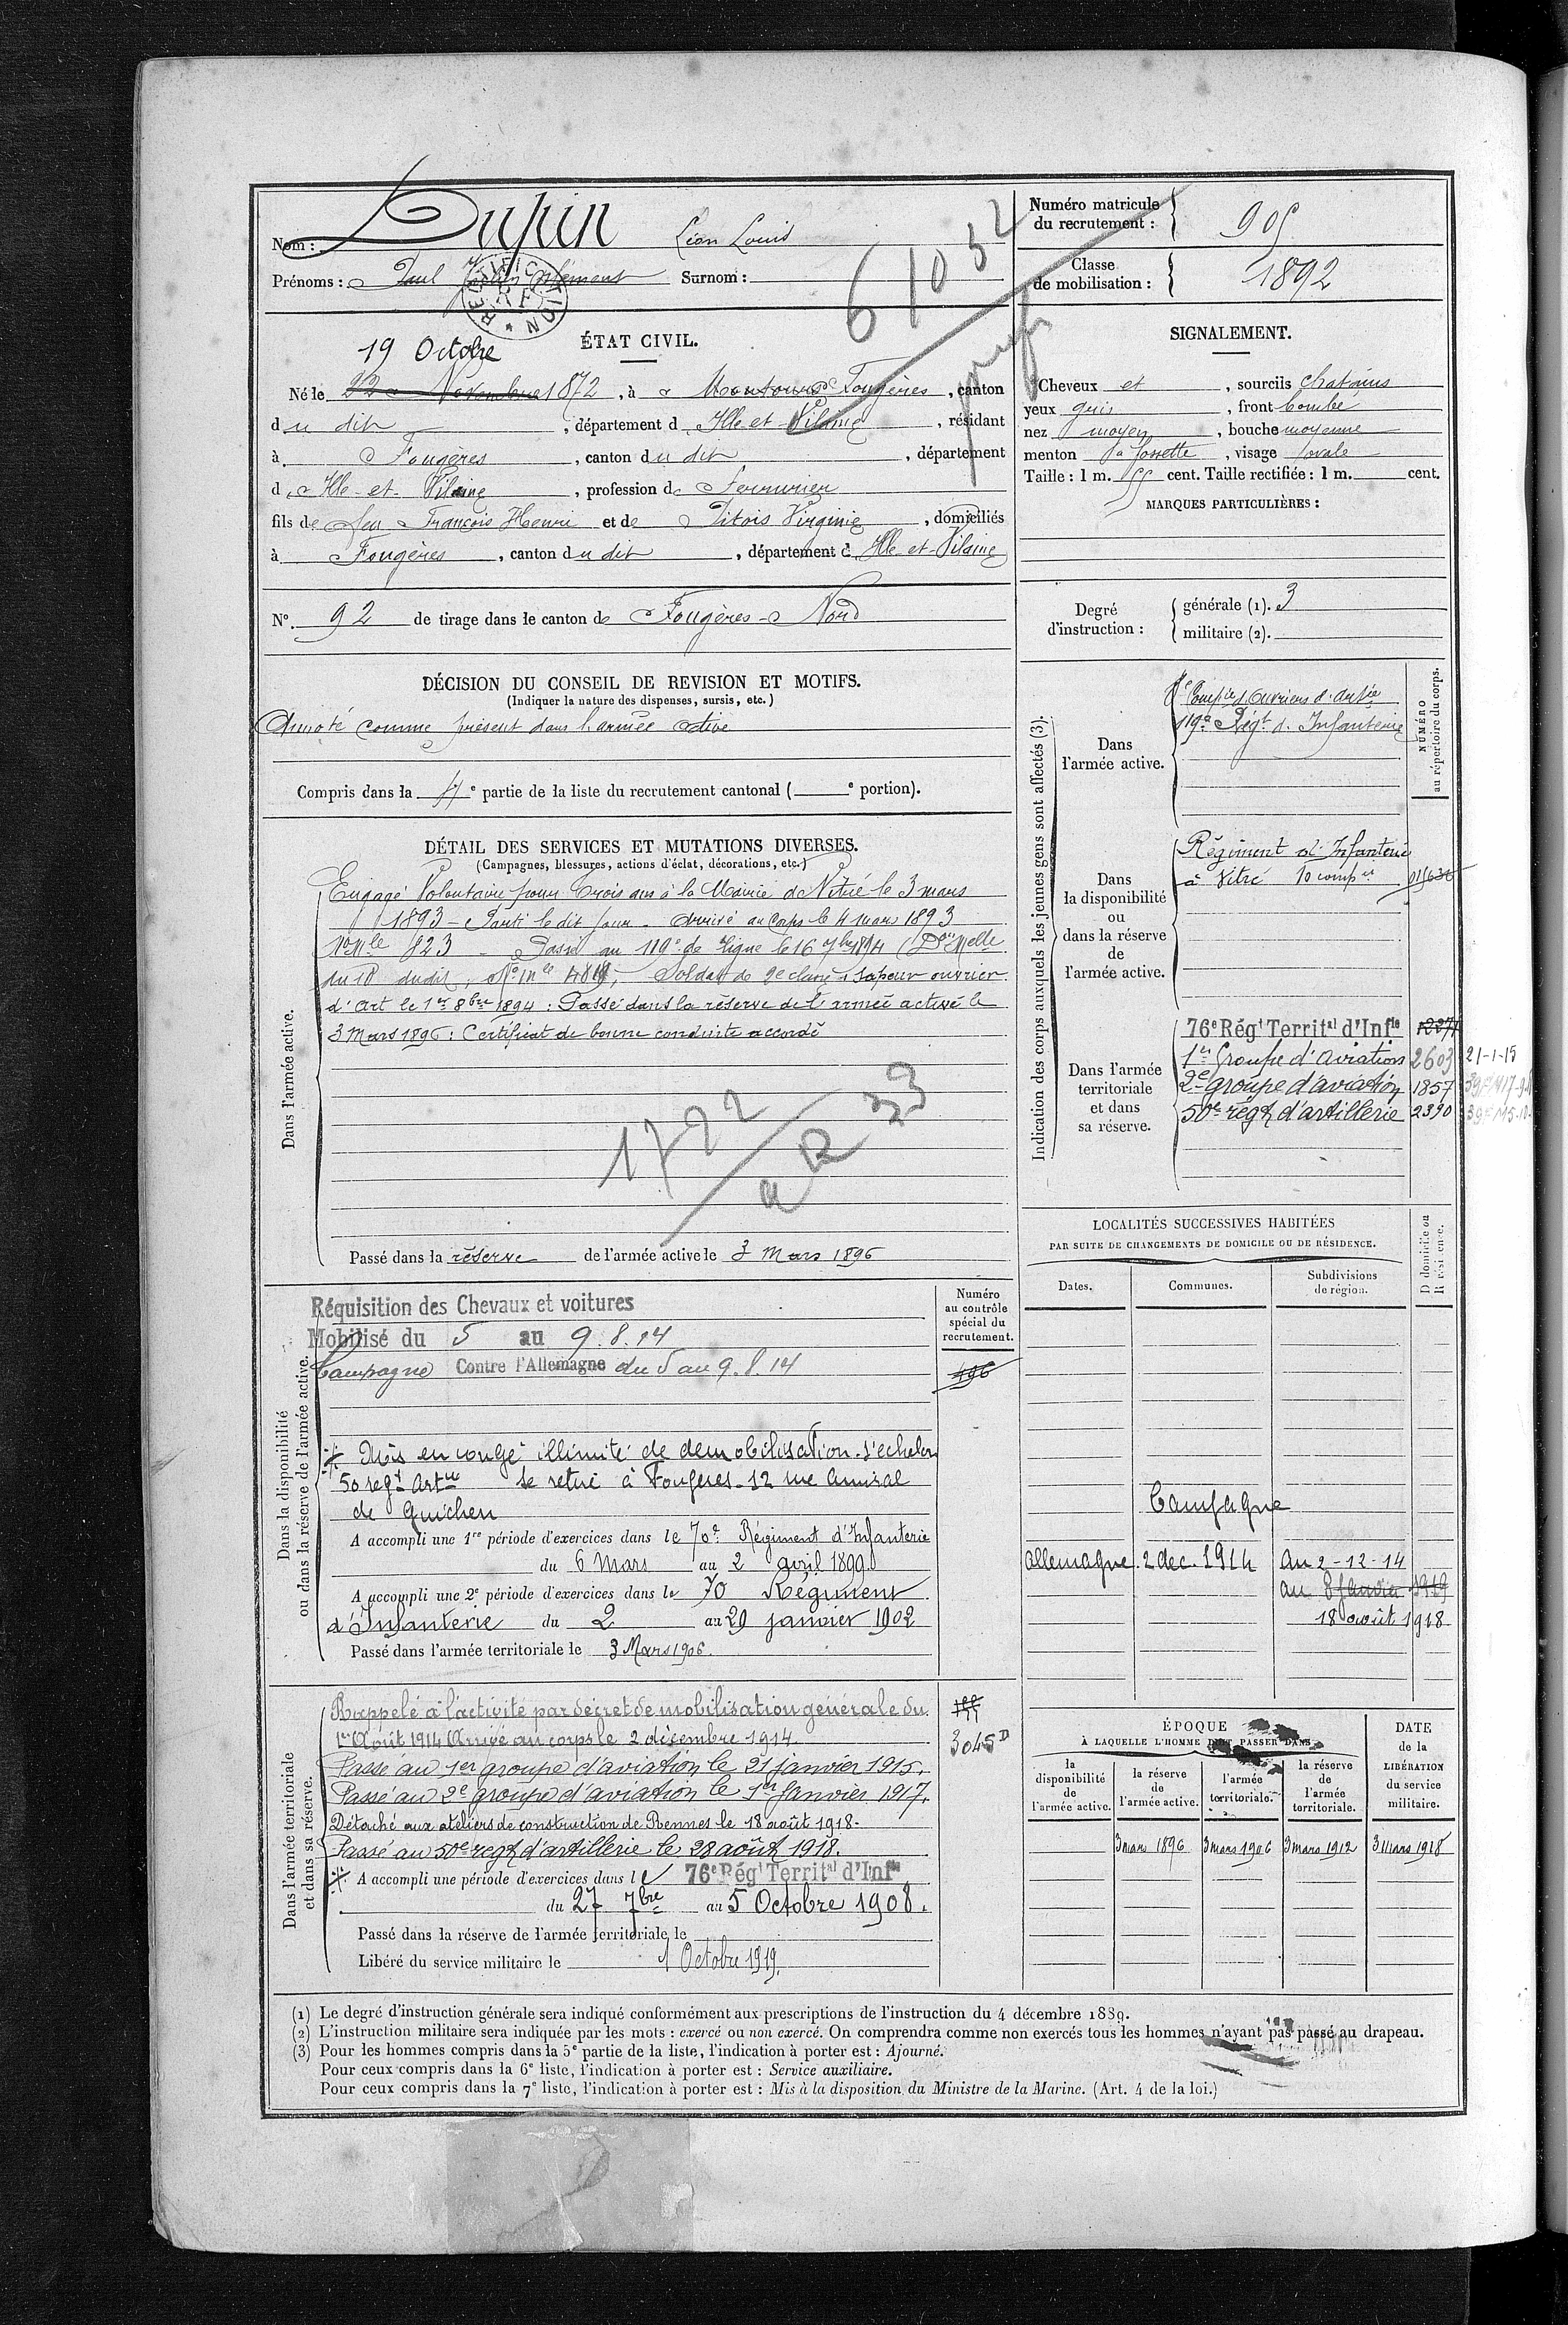 Nom : Dupin Léon Louis
Prénoms : Paul Clément Surnom :
RECTIFICATION
61032
ÉTAT CIVIL.
19 Octobre
Né le 22 Novembre 1872, à Montours Fougères, canton
du dit, département d Ille et Vilaine, résidant
à Fougères, canton du dit, département
d Ille-et-Vilaine, profession de Serrurier
fils de feu François Henri et de Pitois Virginie, domiciliés
à Fougères, canton du dit, département d Ille-et-Vilaine
N° 92 de tirage dans le canton de Fougères-Nord
DÉCISION DU CONSEIL DE REVISION ET MOTIFS.
(Indiquer la nature des dispenses, sursis, etc.)
Annoté comme présent dans l'armée active
Compris dans la 4e partie de la liste du recrutement cantonal ( e portion).
DÉTAIL DES SERVICES ET MUTATIONS DIVERSES.
(Campagnes, blessures, actions d'éclat, décorations, etc.)
Dans l'armée active.
Engagé Volontaire pour trois ans à la Mairie de Vitré le 3 mars
1893 - Parti le dit jour - Arrivé au Corps le 4 mars 1893
No Mle 823 - Passé au 119e de ligne le 16 7bre 1894 (Don Melle
du 18 dudit, No mle 4819, Soldat de 2e classe sapeur ouvrier
d'Art le 1er 8bre 1894 : Passé dans la réserve de l'armée active le
3 Mars 1896 : Certificat de bonne conduite accordé
1722
a R 33
Passé dans la réserve de l'armée active le 3 Mars 1896
Dans la disponibilité
ou dans la réserve de l'armée active.
Numéro
au contrôle
spécial du
recrutement.
496
Réquisition des Chevaux et voitures
Mobilisé du 5 au 9.8.14
Campagne Contre l'Allemagne du 5 au 9.8.14
Mis en congé illimité de démobilisation. s'échelon
50 regt Artie se retire à Fougeres. 12 rue Amiral
de Guichen
A accompli une 1re période d'exercices dans le 70e Régiment d'Infanterie
du 6 Mars au 2 avril 1899
A accompli une 2e période d'exercices dans le 70 Régiment
d'Infanterie du 2 au 29 janvier 1902
Passé dans l'armée territoriale le 3 Mars 1906.
Dans l'armée territoriale
et dans sa réserve.
Rappelé à l'activité par décret de mobilisation générale du
1er Août 1914 Arrivé au corps le 2 décembre 1914.
Passé au 1er groupe d'aviation le 21 janvier 1915.
Passé au 2e groupe d'aviation le 1er Janvier 1917.
Détaché aux ateliers de construction de Rennes le 18 août 1918.
Passé au 50e regt d'artillerie le 28 août 1918.
3045 D
A accompli une période d'exercices dans le 76e Régt Territal d'Infie
du 27 7bre au 5 Octobre 1908.
Passé dans la réserve de l'armée territoriale le
Libéré du service militaire le 1 Octobre 1919.
Numéro matricule
du recrutement : 905
Classe
de mobilisation : 1892
SIGNALEMENT.
Cheveux et, sourcils chatains
yeux gris, front bombé
nez moyen, bouche moyenne
menton à fossette, visage ovale
Taille : 1 m. 55 cent. Taille rectifiée : 1 m. cent.
MARQUES PARTICULIÈRES :
Degré
d'instruction :
générale (1). 3
militaire (2).
Indication des corps auxquels les jeunes gens sont affectés (3).
NUMÉRO
au répertoire du corps.
Dans
l'armée active.
Compie d'Ouvriers d'Artie
119e Régt d'Infanterie
Dans
la disponibilité
ou
dans la réserve
de
l'armée active.
Régiment d'Infanterie
à Vitré 10 compie
Dans l'armée
territoriale
et dans
sa réserve.
76e Régt Territal d'Infie
1er Groupe d'aviation 2603 21-1-15
2e groupe d'aviation 1857
50e régt d'artillerie 2390
LOCALITÉS SUCCESSIVES HABITÉES
PAR SUITE DE CHANGEMENTS DE DOMICILE OU DE RÉSIDENCE.
Dates. Communes. Subdivisions
de région. D domicile ou
R résidence.
Campagne
Allemagne 2 dec. 1914 au 2-12-14
au 8 Janvier 1919
18 août 1918
ÉPOQUE
À LAQUELLE L'HOMME DOIT PASSER DANS
la
disponibilité
de
l'armée active.
la réserve
de
l'armée active.
l'armée
territoriale.
la réserve
de
l'armée
territoriale.
DATE
de la
LIBÉRATION
du service
militaire.
3 mars 1896 3 mars 1906 3 mars 1912 3 mars 1918
(1) Le degré d'instruction générale sera indiqué conformément aux prescriptions de l'instruction du 4 décembre 1889.
(2) L'instruction militaire sera indiquée par les mots : exercé ou non exercé. On comprendra comme non exercés tous les hommes n'ayant pas passé au drapeau.
(3) Pour les hommes compris dans la 5e partie de la liste, l'indication à porter est : Ajourné.
Pour ceux compris dans la 6e liste, l'indication à porter est : Service auxiliaire.
Pour ceux compris dans la 7e liste, l'indication à porter est : Mis à la disposition du Ministre de la Marine. (Art. 4 de la loi.)